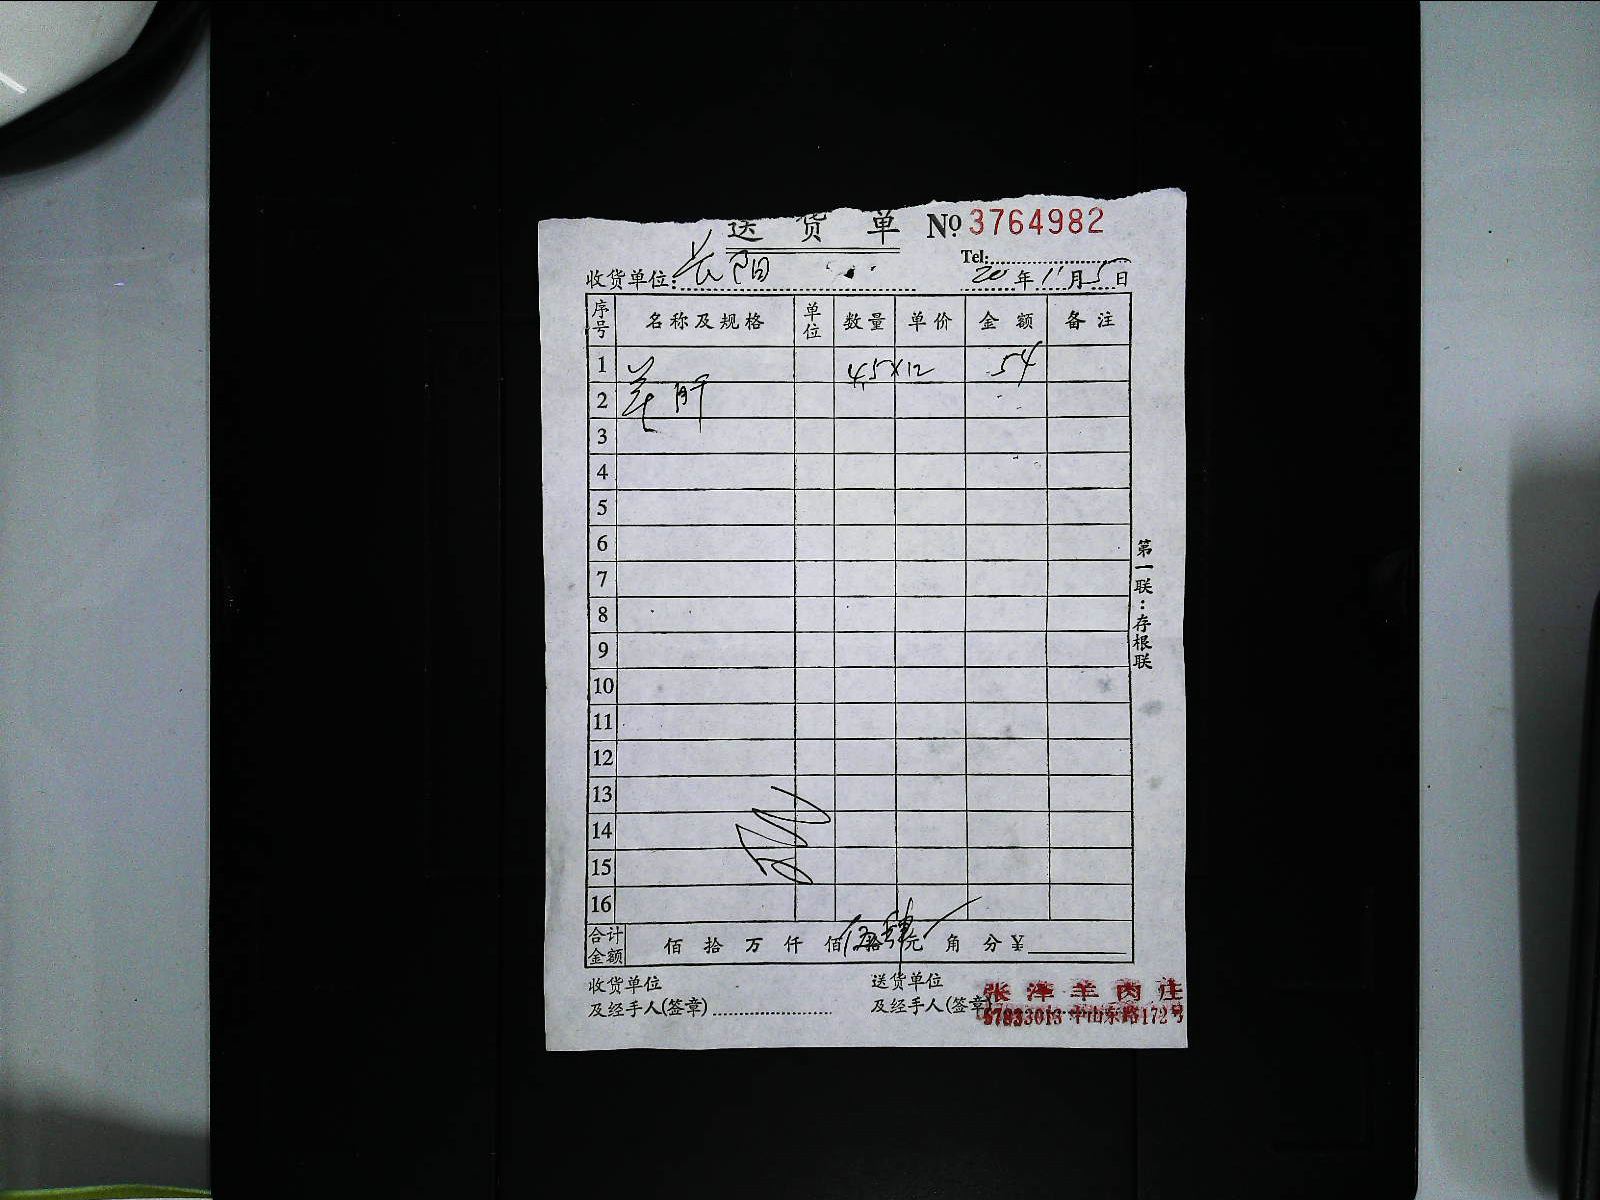 送 货 单 №3764982
Tel:
收货单位: 长阳 20年11月5日
序号 名称及规格 单位 数量 单价 金额 备注
1 羊肝 4.5×12 54
2
3
4
5
6
7
8
9
10
11
12
13
14
15
16
第一联:存根联
合计金额 佰 拾 万 仟 佰 伍拾肆元 角 分 ¥
收货单位 送货单位
及经手人(签章) 及经手人(签章)
张泽羊肉庄
57833013 中山东路172号